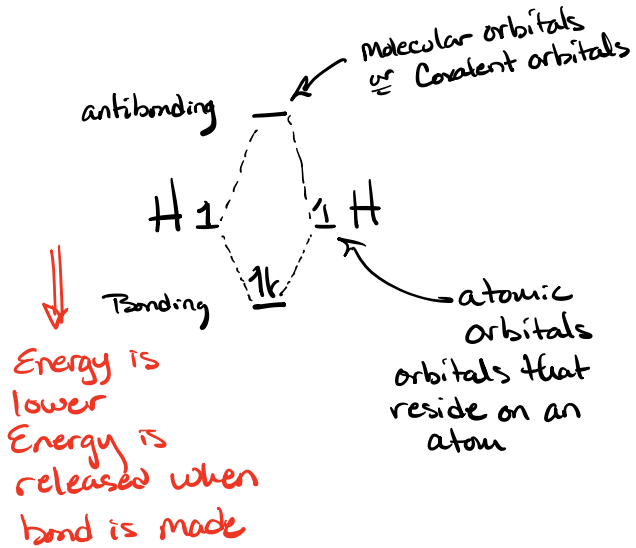 Molecular orbitals
or Covalent orbitals
antibonding
H 1 1 H
1L
Bonding
atomic
orbitals
orbitals that
reside on an
atom
Energy is
lower
Energy is
released when
bond is made